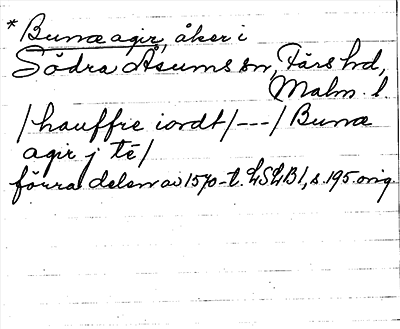 * Bunæ agir, åker i
Södra Åsums sn, Färs hd,
Malm. l.
/hauffre iordt/---/Bunæ
agir j té/
förra delen av 1570-t. LSLB1, s. 195 orig.